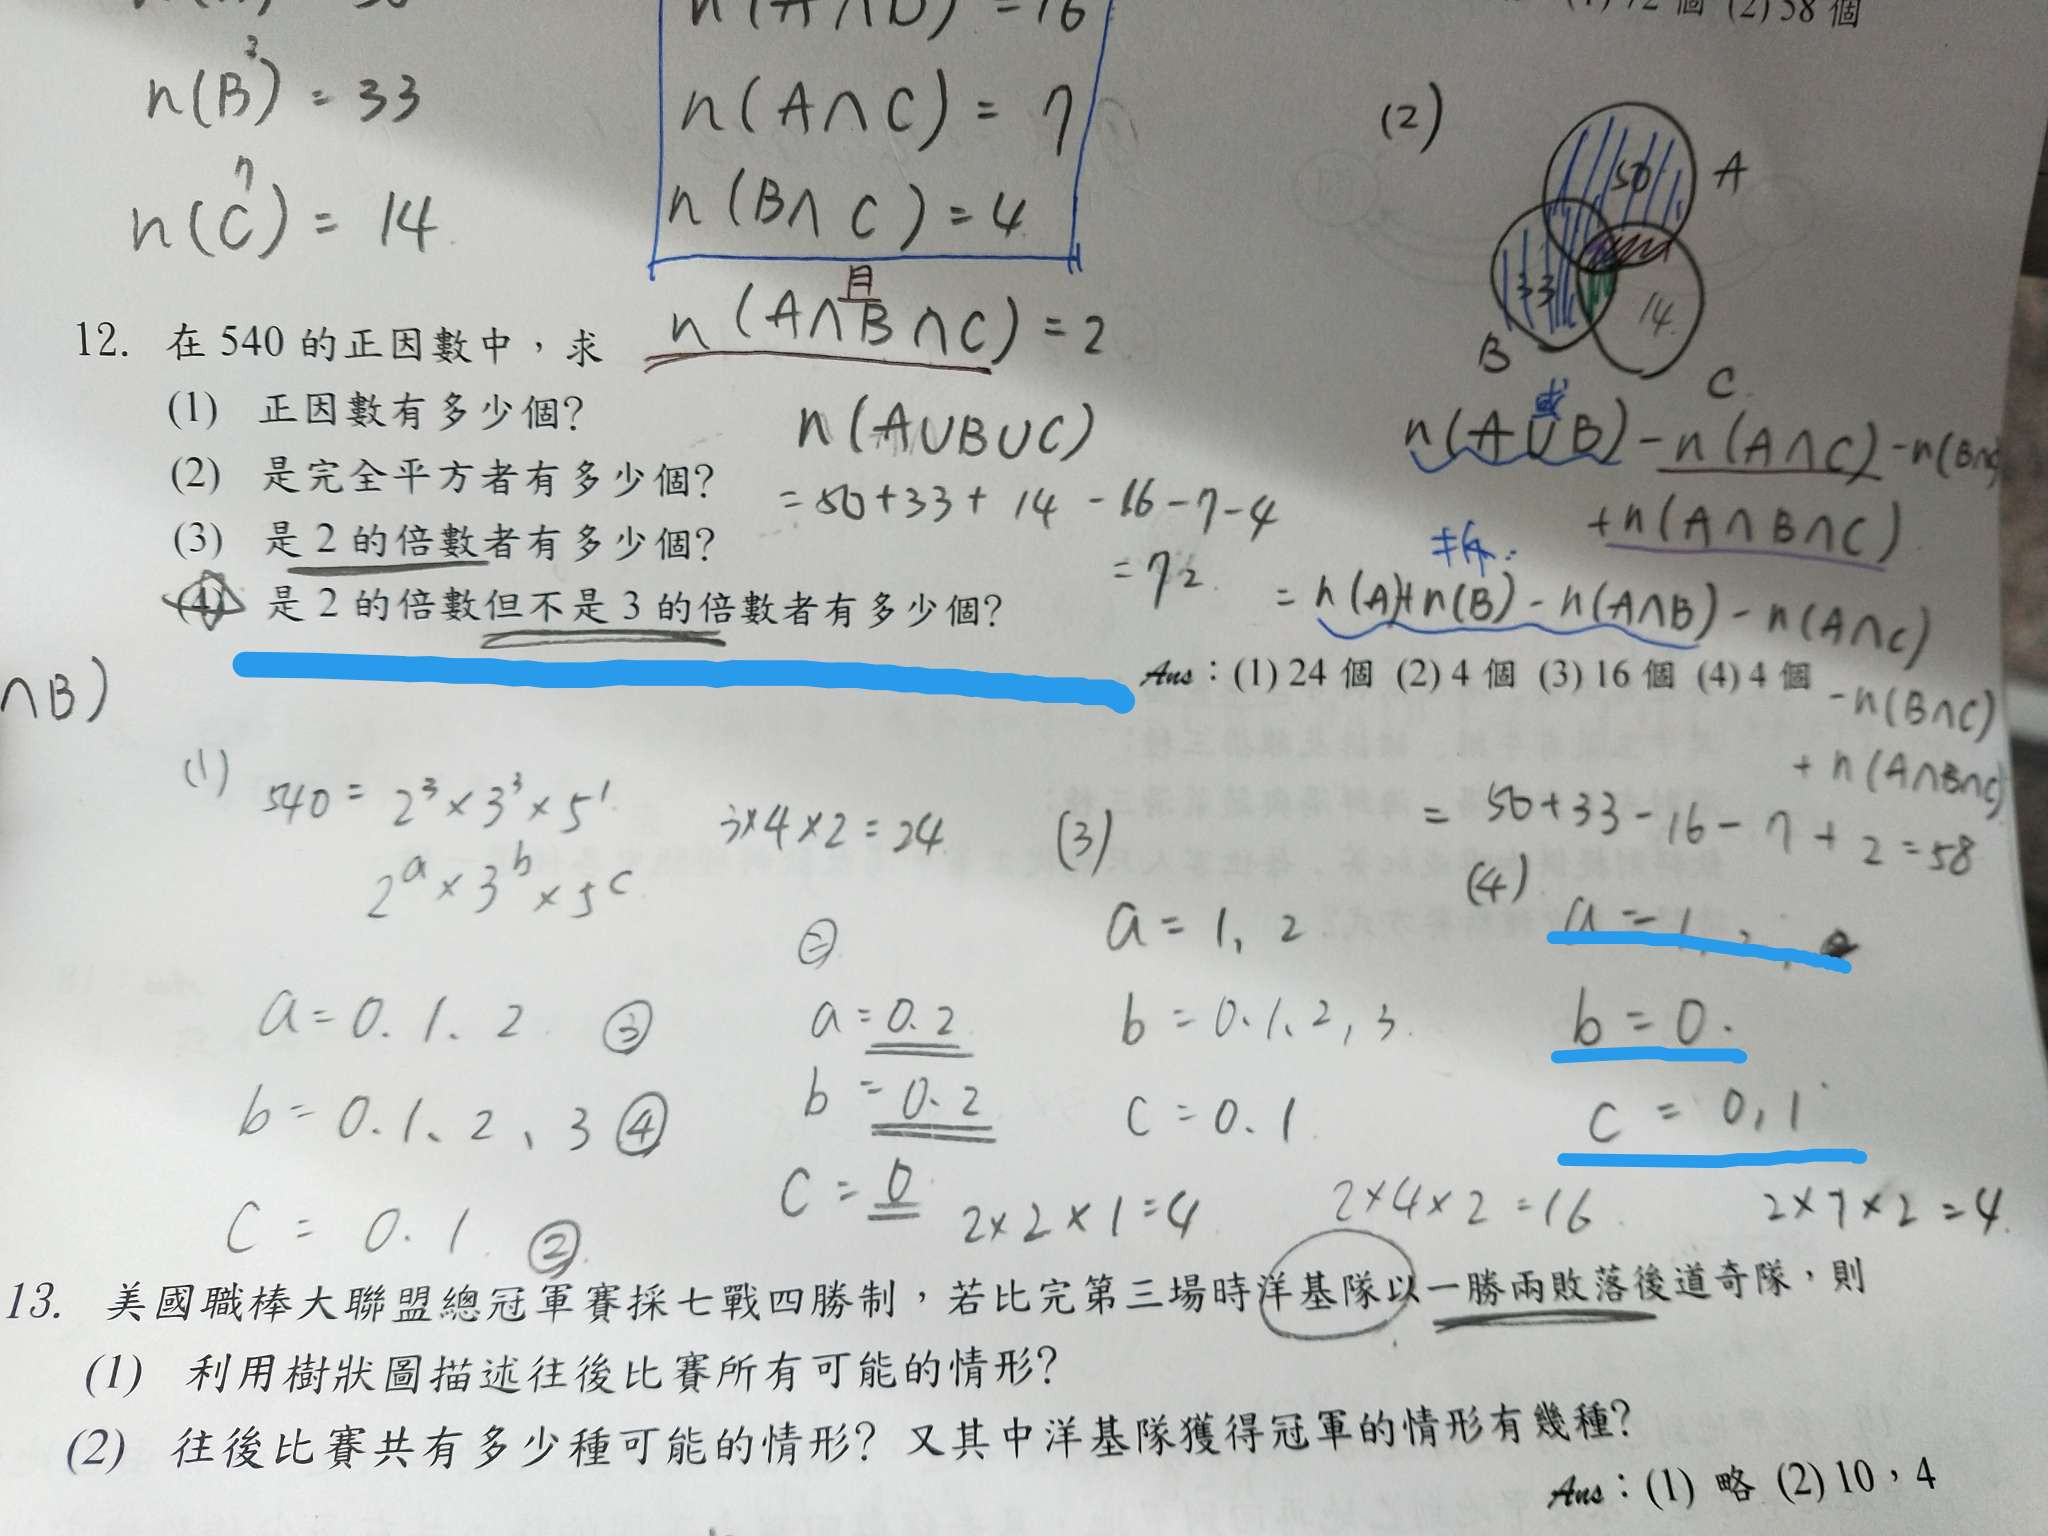 n(A∩B) = 16
(2) 58 個
n(B) = 33
n(A∩C) = 7
(2)
50
A
n(C) = 14
n(B∩C) = 4
33
14
B
C
且
n(A∩B∩C) = 2
12. 在 540 的正因數中，求
(1) 正因數有多少個?
(2) 是完全平方者有多少個?
(3) 是 2 的倍數者有多少個?
(4) 是 2 的倍數但不是 3 的倍數者有多少個?
n(A∪B∪C)
= 50+33+14-16-7-4
= 72
或
n(A∪B) - n(A∩C) - n(B∩C)
+n(A∩B∩C)
= n(A)+n(B) - n(A∩B) - n(A∩C)
- n(B∩C)
+ n(A∩B∩C)
= 50+33-16-7+2=58
Ans：(1) 24 個 (2) 4 個 (3) 16 個 (4) 4 個
∩B)
(1) 540 = 2³×3³×5¹
2ᵃ×3ᵇ×5ᶜ
3×4×2=24
a=0.1、2 ③
b=0.1、2、3 ④
C = 0.1 ②
a=0.2
b=0.2
C=0
2×2×1=4
(3)
a=1、2
b=0.1、2,3
C=0.1
2×4×2=16
(4)
a=1,2
b=0.
C=0,1
2×1×2=4
13. 美國職棒大聯盟總冠軍賽採七戰四勝制，若比完第三場時洋基隊以一勝兩敗落後道奇隊，則
(1) 利用樹狀圖描述往後比賽所有可能的情形?
(2) 往後比賽共有多少種可能的情形? 又其中洋基隊獲得冠軍的情形有幾種?
Ans：(1) 略 (2) 10，4